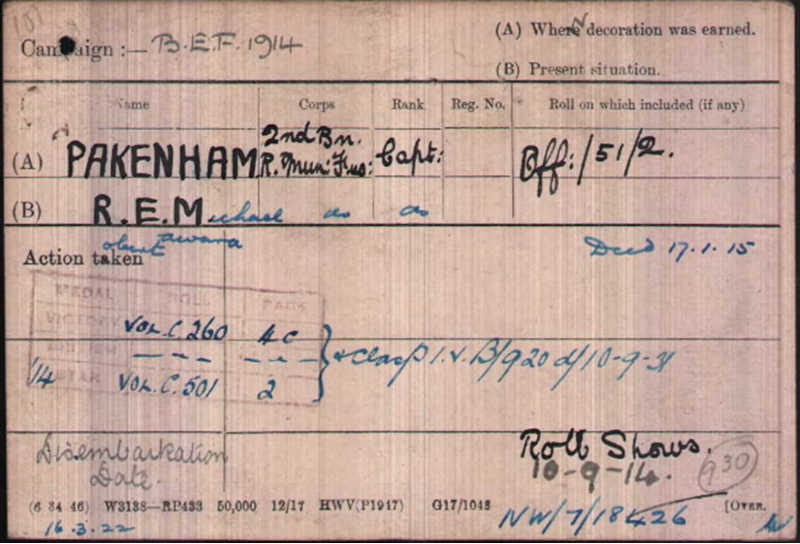 Campaign :— B.E.F. 1914
(A) Where decoration was earned.
(B) Present situation.
Name Corps Rank Reg. No. Roll on which included (if any)
(A) PAKENHAM 2nd Bn. R. Mun: Fus: Capt: Off:/51/2.
(B) R.E.Michael do do
obert dward
Action taken Died 17.1.15
MEDAL ROLL PAGE
VICTORY VOL.C.260 4C
BRITISH — — — — — —
14 STAR VOL.C.501 2
+ clasp I.V. B/920 d/10-9-31
Disembarkation Date. Roll Shows.
10-9-14. 930
(6 34 46) W3138—RP433 50,000 12/17 HWV(P1947) G17/1043 [OVER.
16.3.22 NW/7/18426